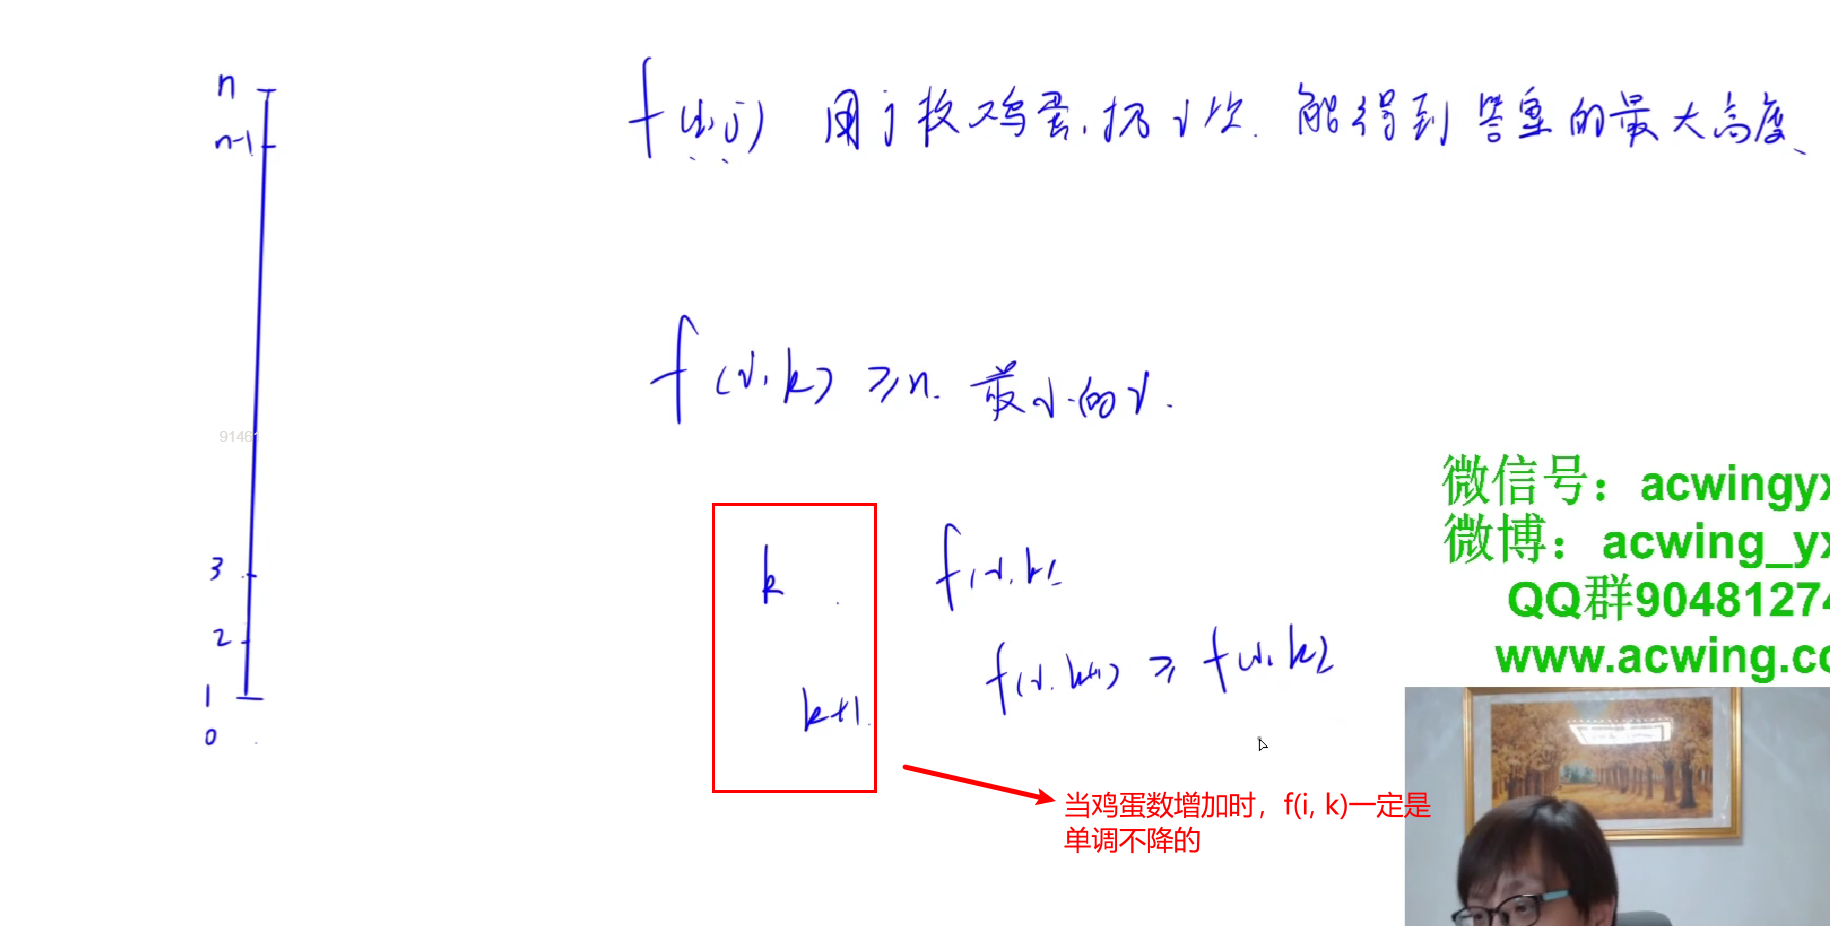 n
n-1
f(i,j) 用j枚鸡蛋,扔i次.能得到答案的最大高度、
f(i,k) ≥n. 最小的i.
91461
3
2
1
0
k
k+1.
f(i,k)
f(i,k+1) ≥ f(i,k)
当鸡蛋数增加时，f(i, k)一定是
单调不降的
微信号：acwingyx
微博：acwing_yx
QQ群90481274
www.acwing.co